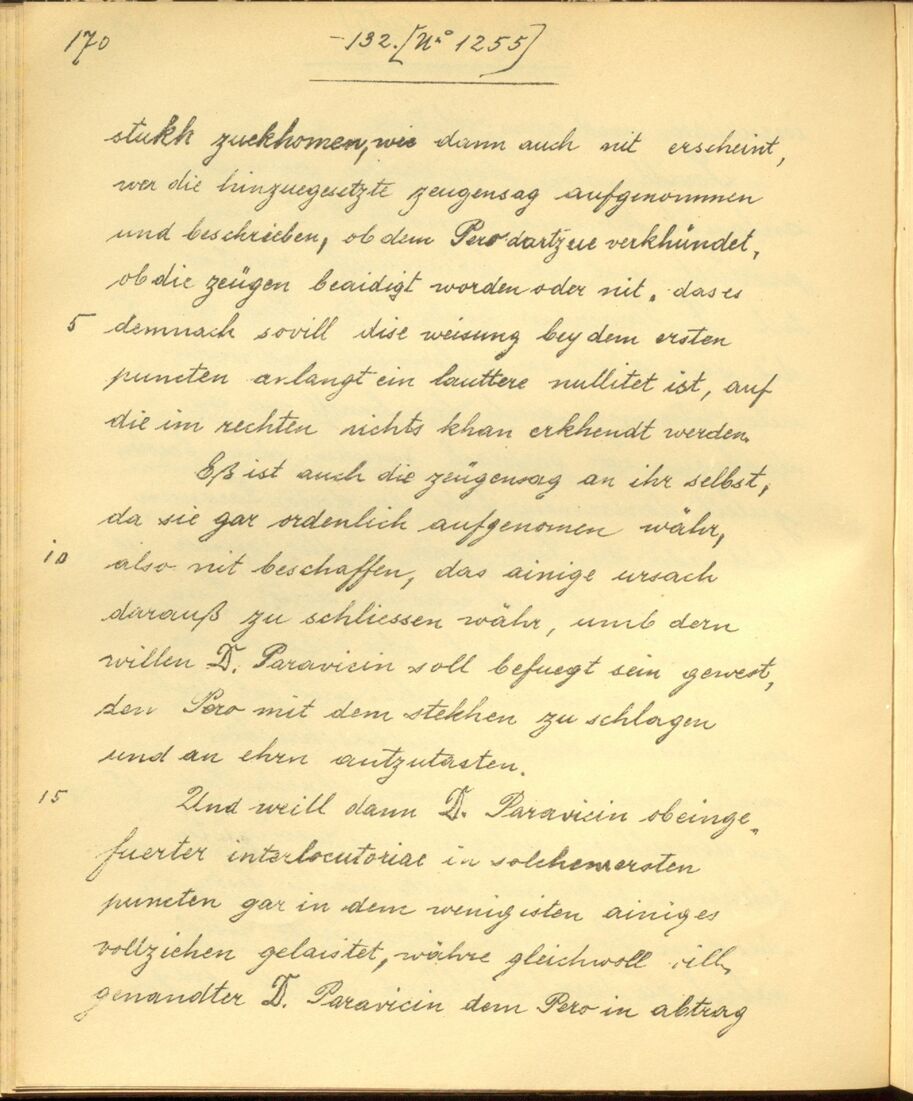 170 -132. [No 1255]
stukh zuekhomen, wie dann auch nit erscheint,
wer die hinzuegesetzte zeugensag aufgenommen
und beschrieben, ob dem Pero dartzue verkhündet,
ob die zeügen beaidigt worden oder nit, das es
5 demnach sovill dise weisung bey dem ersten
puncten anlangt ein lauttere nullitet ist, auf
die im rechten nichts khan erkhendt werden.
Eß ist auch die zeügensag an ihr selbst,
da sie gar ordenlich aufgenomen währ,
10 also nit beschaffen, das ainige ursach
darauß zu schliessen währ, umb dern
willen D. Paravicin soll befuegt sein gewest,
den Pero mit dem stekhen zu schlagen
und an ehrn antzutasten.
15 Und weill dann D. Paravicin obeinge-
fuerter interlocutoriae in solchem ersten
puncten gar in dem wenigisten ainiges
vollziehen gelaistet, währe gleichwoll vill-
genandter D. Paravicin dem Pero in abtrag